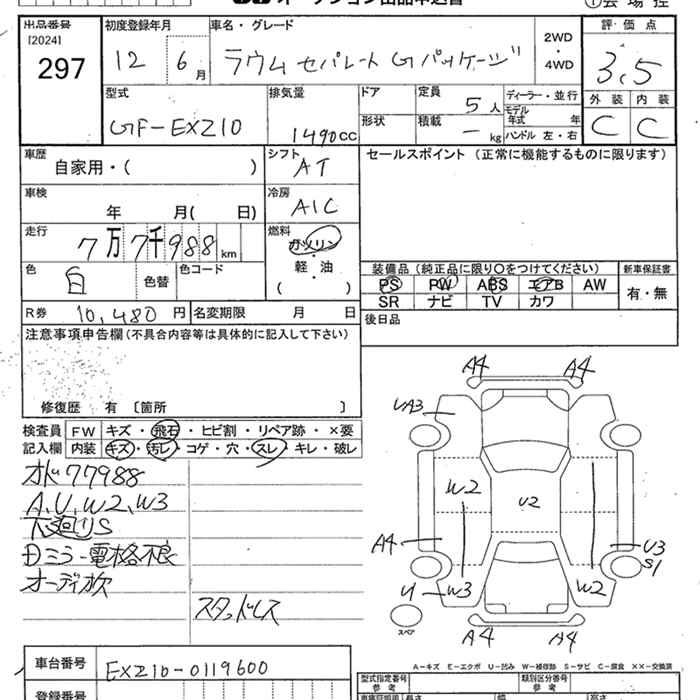 出品番号 [2024] 297
初度登録年月 12 6月
車名・グレード ラウム セパレート Gパッケージ
2WD・4WD
評価点 3.5
型式 GF-EXZ10
排気量 1490cc
ドア
形状
定員 5人
積載 ー kg
ディーラー・並行
モデル年式 年
ハンドル 左・右
外装 C 内装 C
車歴 自家用・( )
シフト AT
セールスポイント (正常に機能するものに限ります)
車検 年 月( 日)
冷房 A/C
走行 7万7千988km
燃料 ガソリン・軽油( )
色 白 色替
色コード
装備品(純正品に限り〇をつけてください)
新車保証書
PS PW ABS エアB AW
有・無
SR ナビ TV カワ
R券 10,480円
名変期限 月 日
後日品
注意事項申告欄(不具合内容等は具体的に記入して下さい)
修復歴 有 〔箇所 〕
検査員記入欄
FW キズ・飛石・ヒビ割・リペア跡・×要
内装 キズ・汚レ・コゲ・穴・スレ・キレ・破レ
オド77988
A、U、W2、W3
下廻りS
Dミラー電格不良
オーディオ欠
スタッドレス
A4 A4
UA3
W2 U2
A4 U3
S1
U W3 W2
スペア
A4 A4
A-キズ E-エクボ U-凹み W-補修跡 S-サビ C-腐食 XX-交換済
車台番号 EXZ10-0119600
型式指定番号 参考
類別区分番号 参考
登録番号
長さ 幅 高さ